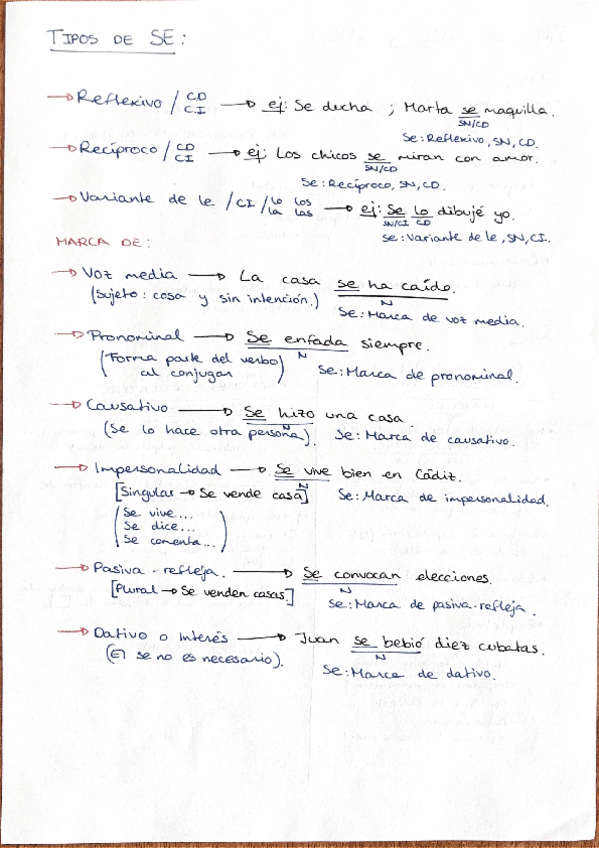 TIPOS DE SE:
→ Reflexivo / CD CI → ej: Se ducha ; Marta se maquilla.
SN/CD
Se: Reflexivo, SN, CD.
→ Recíproco / CD CI → ej: Los chicos se miran con amor.
SN/CD
Se: Recíproco, SN, CD.
→ Variante de le / CI / lo la los las → ej: Se lo dibujé yo.
SN/CI CD
Se: Variante de le, SN, CI.
MARCA DE:
→ Voz media → La casa se ha caído.
N
(Sujeto: cosa y sin intención.)
Se: Marca de voz media.
→ Pronominal → Se enfada siempre.
N
(Forma parte del verbo al conjugar)
Se: Marca de pronominal.
→ Causativo → Se hizo una casa.
N
(Se lo hace otra persona). Se: Marca de causativo.
→ Impersonalidad → Se vive bien en Cádiz.
N
[Singular → Se vende casa] Se: Marca de impersonalidad.
(Se vive...
Se dice...
Se comenta...)
→ Pasiva-refleja. → Se convocan elecciones.
N
[Plural → Se venden casas.]
Se: Marca de pasiva-refleja.
→ Dativo o Interés → Juan se bebió diez cubatas.
N
(El se no es necesario).
Se: Marca de dativo.